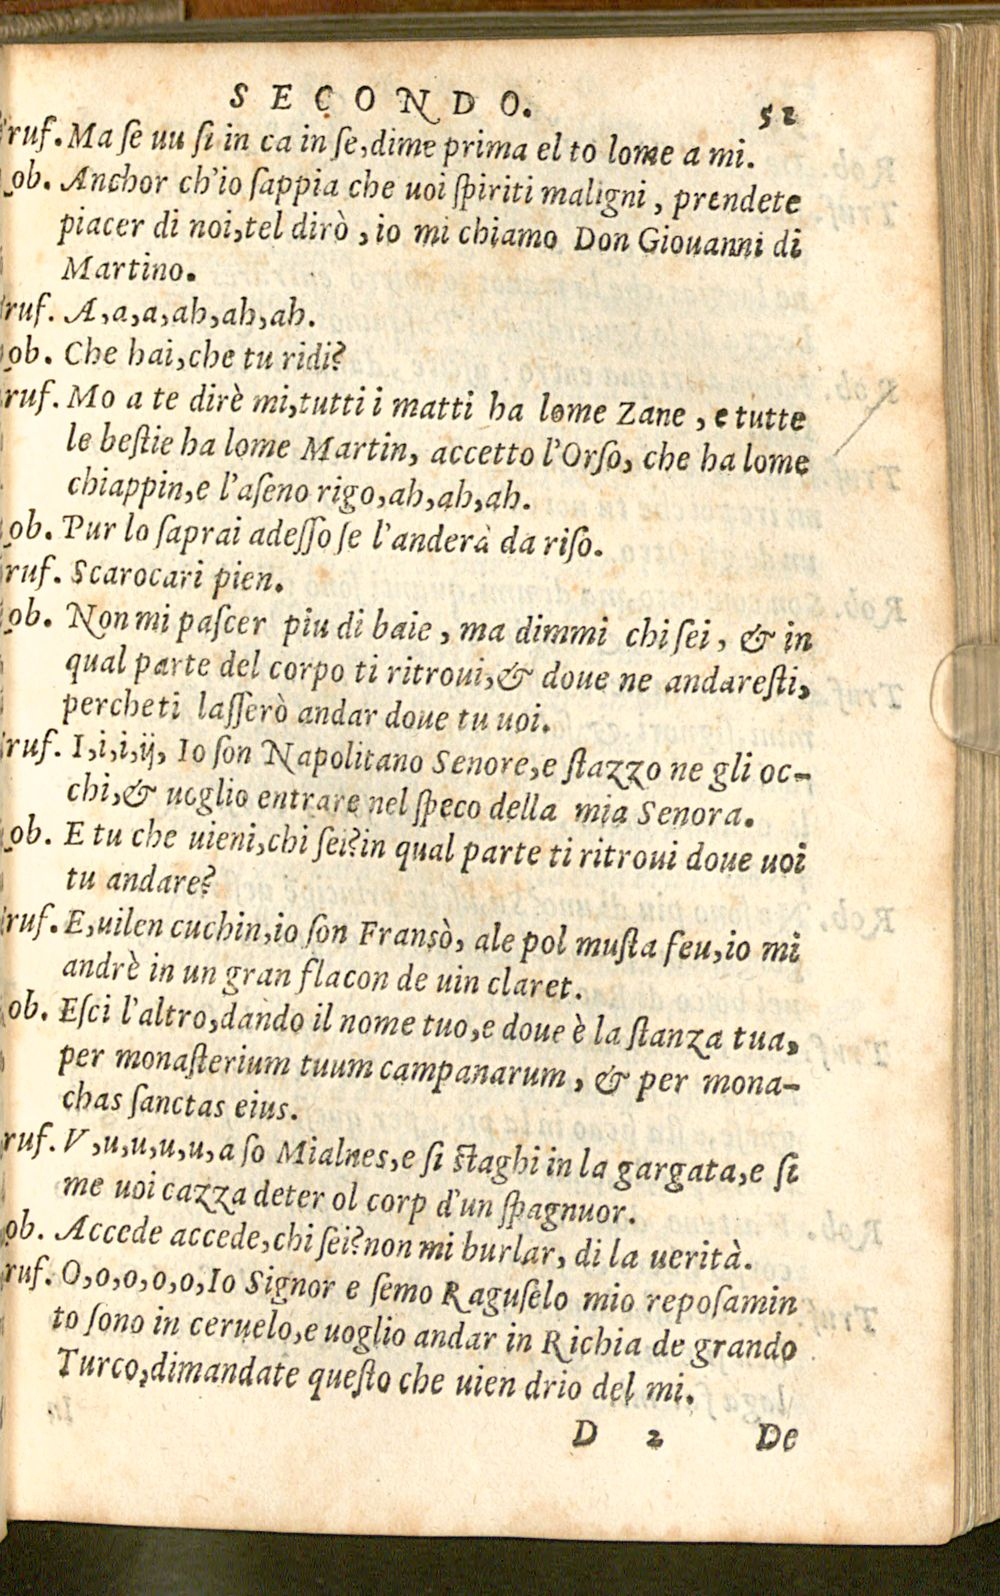 SECONDO. 52
ruf. Ma ſe uu ſi in ca in ſe, dime prima el to lome a mi.
ob. Anchor ch'io ſappia che uoi ſpiriti maligni, prendete
piacer di noi, tel dirò, io mi chiamo Don Giouanni di
Martino.
ruf. A, a, a, ah, ah, ah.
ob. Che hai, che tu ridi?
ruf. Mo a te dirè mi, tutti i matti ha lome Zane, e tutte
le beſtie ha lome Martin, accetto l'Orſo, che ha lome
chiappin, e l'aſeno rigo, ah, ah, ah.
ob. Pur lo ſaprai adeſſo ſe l'anderà da riſo.
ruf. Scarocari pien.
ob. Non mi paſcer piu di baie, ma dimmi chi ſei, & in
qual parte del corpo ti ritroui, & doue ne andareſti,
percheti laſſerò andar doue tu uoi.
ruf. I, i, i, ij, Io ſon Napolitano Senore, e ſtazzo ne gli oc-
chi, & uoglio entrare nel ſpeco della mia Senora.
ob. E tu che uieni, chi ſei? in qual parte ti ritroui doue uoi
tu andare?
ruf. E, uilen cuchin, io ſon Fransò, ale pol muſta feu, io mi
andrè in un gran flacon de uin claret.
ob. Eſci l'altro, dando il nome tuo, e doue è la ſtanza tua,
per monaſterium tuum campanarum, & per mona-
chas ſanctas eius.
ruf. V, u, u, u, u, a ſo Mialnes, e ſi ſtaghi in la gargata, e ſi
me uoi cazza deter ol corp d'un ſpagnuor.
ob. Accede accede, chi ſei? non mi burlar, di la uerità.
ruf. O, o, o, o, o, Io Signor e ſemo Raguſelo mio repoſamin
to ſono in ceruelo, e uoglio andar in Richia de grando
Turco, dimandate queſto che uien drio del mi.
D 2 De